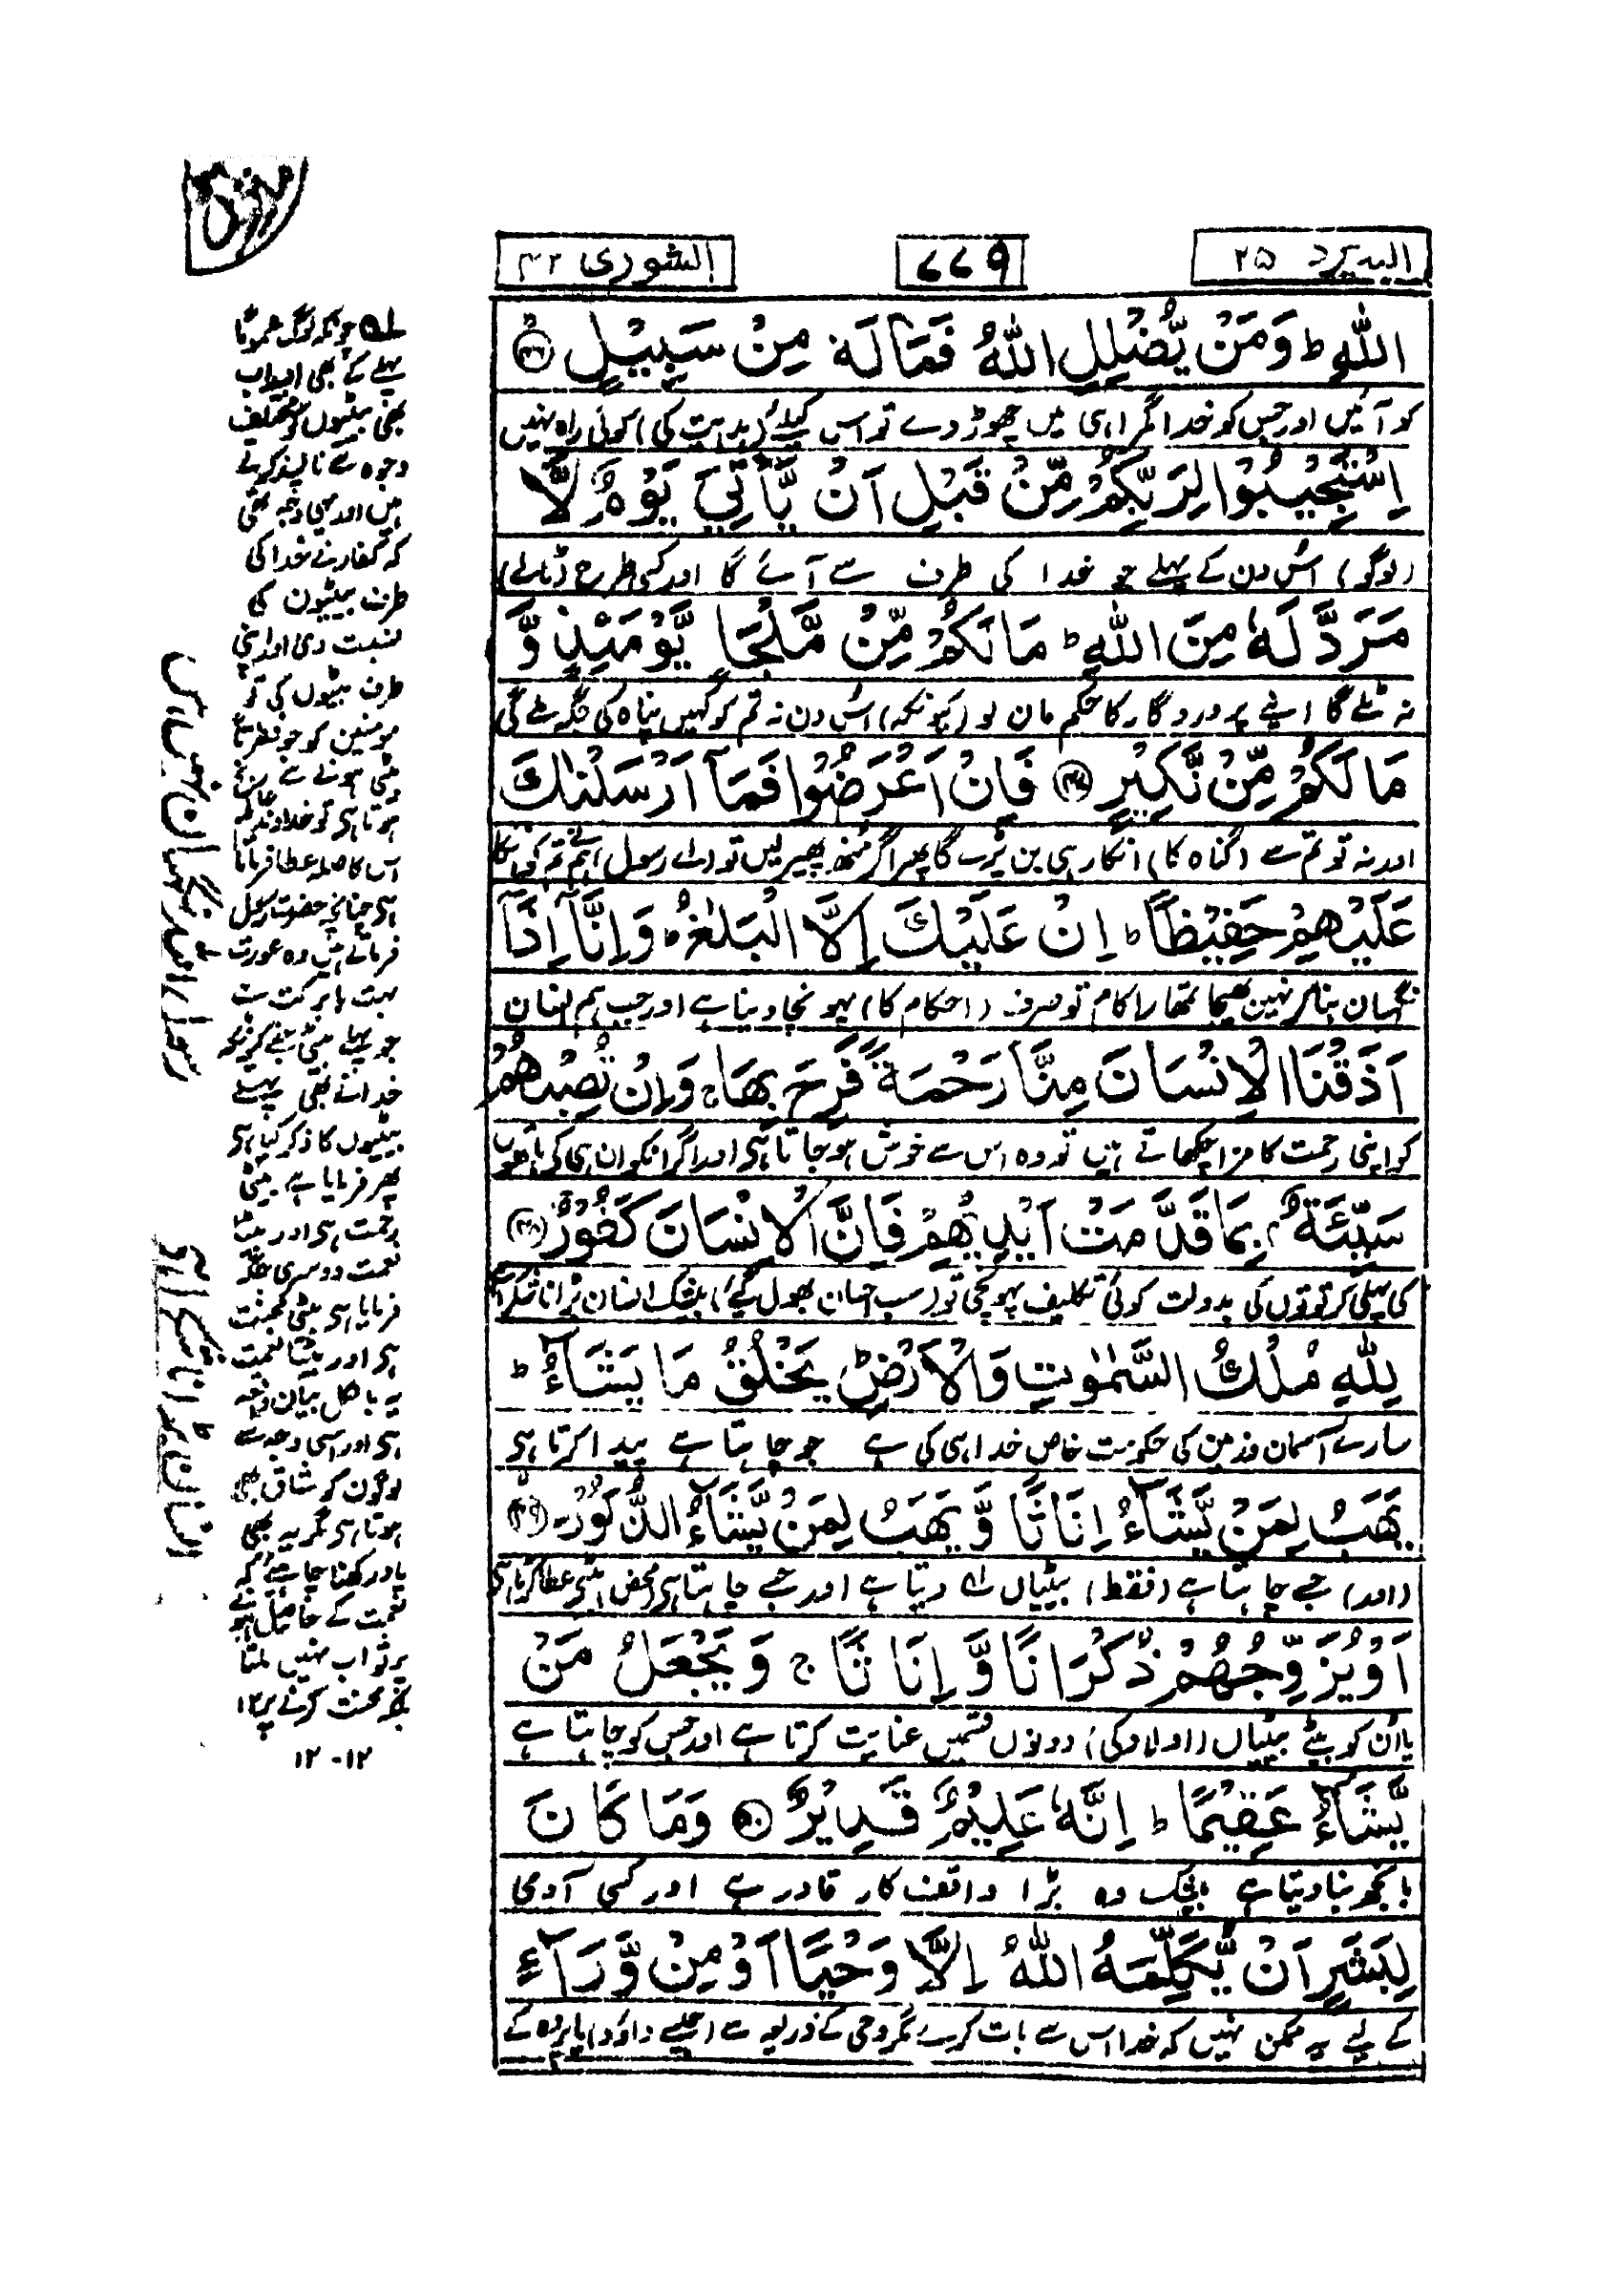 الیہ یرد ۲۵
۷۷۹
الشوریٰ ۴۲
اللّٰهِ ؕ وَمَنْ يُّضْلِلِ اللّٰهُ فَمَا لَهٗ مِنْ سَبِيْلٍ ﴿۴۶﴾
کو آئیں اور جس کو خدا گمراہی میں چھوڑ دے تو اس کیلئے (ہدایت کی) کوئی راہ نہیں
اِسْتَجِيْبُوْا لِرَبِّكُمْ مِّنْ قَبْلِ اَنْ يَّاْتِيَ يَوْمٌ لَّا
(لوگو) اُس دن کے پہلے جو خدا کی طرف سے آئے گا اور کسی طرح (ٹالے)
مَرَدَّ لَهٗ مِنَ اللّٰهِ ؕ مَا لَكُمْ مِّنْ مَّلْجَاٍ يَّوْمَئِذٍ وَّ
نہ ٹلے گا اپنے پروردگار کا حکم مان لو (کیونکہ) اُس دن نہ تم کو کہیں پناہ کی جگہ ملے گی
مَا لَكُمْ مِّنْ نَّكِيْرٍ ﴿۴۷﴾ فَاِنْ اَعْرَضُوْا فَمَاۤ اَرْسَلْنٰكَ
اور نہ تو تم سے (گناہ کا) انکار ہی بن پڑے گا پھر اگر منھ پھیر لیں تو (اے رسول) ہم نے تم کو انکا
عَلَيْهِمْ حَفِيْظًا ؕ اِنْ عَلَيْكَ اِلَّا الْبَلٰغُ ؕ وَاِنَّاۤ اِذَاۤ
نگہبان بنا کر نہین بھیجا تمھارا کام تو صرف (احکام کا) پہونچا دینا ہے اور جب ہم انسان
اَذَقْنَا الْاِنْسَانَ مِنَّا رَحْمَةً فَرِحَ بِهَا ۚ وَاِنْ تُصِبْهُمْ
کو اپنی رحمت کا مزا چکھاتے ہیں تو وہ اس سے خوش ہو جاتا ہی اور اگر انکو ان ہی کے ہاتھوں
سَيِّئَةٌۢ بِمَا قَدَّمَتْ اَيْدِيْهِمْ فَاِنَّ الْاِنْسَانَ كَفُوْرٌ ﴿۴۸﴾
کی پہلی کرتوتوں کی بدولت کوئی تکلیف پہونچی تو (سب احسان بھول گئے) بیشک انسان بڑا ناشکرا ہے
لِلّٰهِ مُلْكُ السَّمٰوٰتِ وَالْاَرْضِ ؕ يَخْلُقُ مَا يَشَآءُ ؕ
سارے آسمان و زمین کی حکومت خاص خدا ہی کی ہے جو چاہتا ہے پیدا کرتا ہی
يَهَبُ لِمَنْ يَّشَآءُ اِنَاثًا وَّيَهَبُ لِمَنْ يَّشَآءُ الذُّكُوْرَ ﴿۴۹﴾
(اور) جسے چاہتا ہے (فقط) بیٹیاں ۱ے دیتا ہے اور جسے چاہتا ہی (محض) بیٹے عطا کرتا ہی
اَوْ يُزَوِّجُهُمْ ذُكْرَانًا وَّاِنَاثًا ۚ وَيَجْعَلُ مَنْ
یا اُن کو بیٹے بیٹیاں (اولاد کی) دونوں قسمیں عنایت کرتا ہے اور جس کو چاہتا ہے
يَّشَآءُ عَقِيْمًا ؕ اِنَّهٗ عَلِيْمٌ قَدِيْرٌ ﴿۵۰﴾ وَمَا كَانَ
بانجھ بنا دیتا ہے بیشک وہ بڑا واقف کار قادر ہے اور کسی آدمی
لِبَشَرٍ اَنْ يُّكَلِّمَهُ اللّٰهُ اِلَّا وَحْيًا اَوْ مِنْ وَّرَآءِ
کے لیے یہ ممکن نہیں کہ خدا اس سے بات کرے مگر وحی کے ذریعہ سے (جیسے داؤد) یا پردہ کے
۱ے چونکہ لوگ عموماً
پہلے کے بھی اور اب
بھی بیٹیوں کو مختلف
وجوہ سے ناپسند کرتے
ہیں اور یہی وجہ تھی
کہ کفار نے خدا کی
طرف بیٹیون کی
نسبت دی اور اپنی
طرف بیٹوں کی تو
مومنین کو جو فطرتاً
بیٹی ہونے سے رنج
ہوتا ہی تو خداوند عالم
اس کا صلہ عطا فرماتا
ہی چنانچہ حضرت رسول
فرماتے ہیں وہ عورت
بہت بابرکت ہے
جو پہلے بیٹی جنے کیونکہ
خدا نے بھی پہلے
بیٹیوں کا ذکر کیا ہی
پھر فرمایا ہے بیٹی
رحمت ہی اور بیٹا
نعمت دوسری جگہ
فرمایا ہی بیٹی محنت
ہی اور بیٹا نعمت
یہ بالکل بیان واقعہ
ہی اور اسی وجہ سے
لوگون کو شاق بھی
ہوتا ہی مگر یہ بھی
یاد رکھنا چاہیے کہ
نعمت کے حاصل ہونے
پر ثواب نہیں ملتا
بلکہ محنت کرنے پر ۱۲
۱۲-۱۲
رسول اللہ نگہبان نہیں ہیں
انسان بڑا ناشکرا ہے